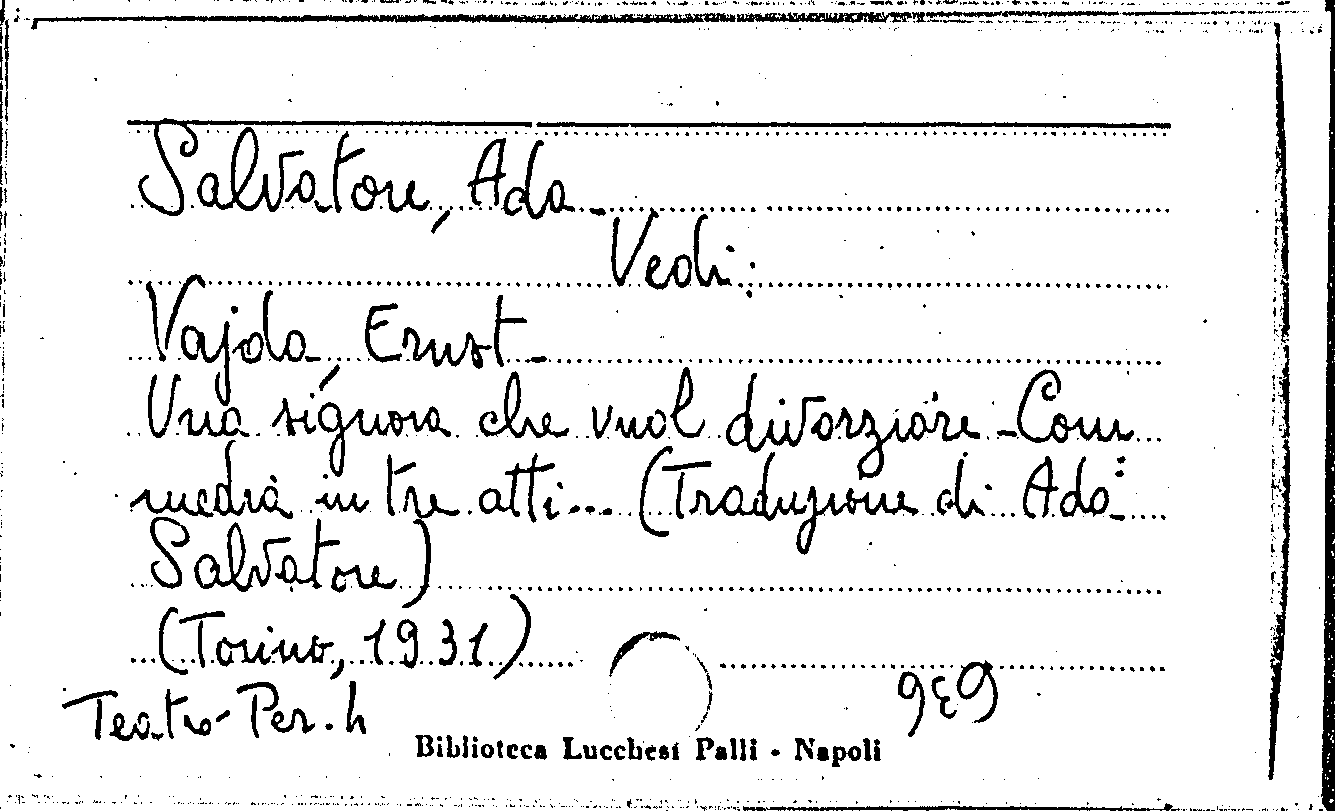 Salvatore, Ada -
Vedi:
Vajda, Ernst -
Una signora che vuol divorziare - Com
media in tre atti... (Traduzione di Ada
Salvatore)
(Torino, 1931)
Teatro - Per. h
Biblioteca Lucchesi Palli - Napoli